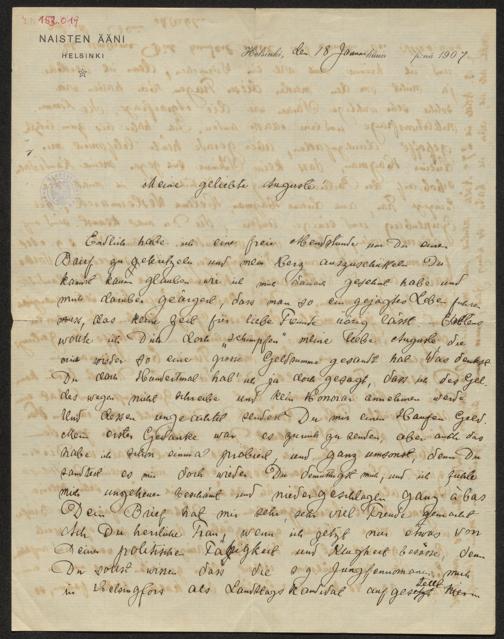 152.019
NAISTEN ÄÄNI
HELSINKI
Helsinki, den 18 Januar 1907.
Meine geliebte Auguste!
Endlich habe ich eine freie Abendstunde um Dir einen
Brief zu gekritzeln und mein Herz auszuschütteln. Du
kannst kaum glauben wie ich mich danach gesehnt habe und
mich darüber geärgert, dass man so ein gejagtes Leben führen
muss, das keine Zeil für liebe Freunde übrig lässt. Erstens
wollte ich Dich doch "schimpfen" meine liebe Auguste die
mir wieder so eine grosse Geldsumme gesandt hat. Was denkst
Du doch Hundertmal hab' ich ja doch gesagt, dass ich des Gel-
des wegen nicht schreibe und kein Honorar annehmen werde.
Und dessen ungeachtet sendest Du mir einen Haufen Geld.
Mein erster Gedanke war es zurück zu senden, aber auch das
habe ich schon einmal probiert, und ganz umsonst, denn Du
sandtest es mir doch wieder. Du demüthigst mich, und ich fühle
mich ungeheuer beschämt und niedergeschlagen ganz à bas
Dein Brief hat mir sehr, sehr viel Freude gemacht
Ach Du herrliche Frau, wenn ich jetzt nur etwas von
Deiner politischen Tätigkeit und Klugheit besässe, denn
Du sollst wissen dass die s g Jungfennomanen mich
in Helsingfors als Landtagskandidat aufgestellt